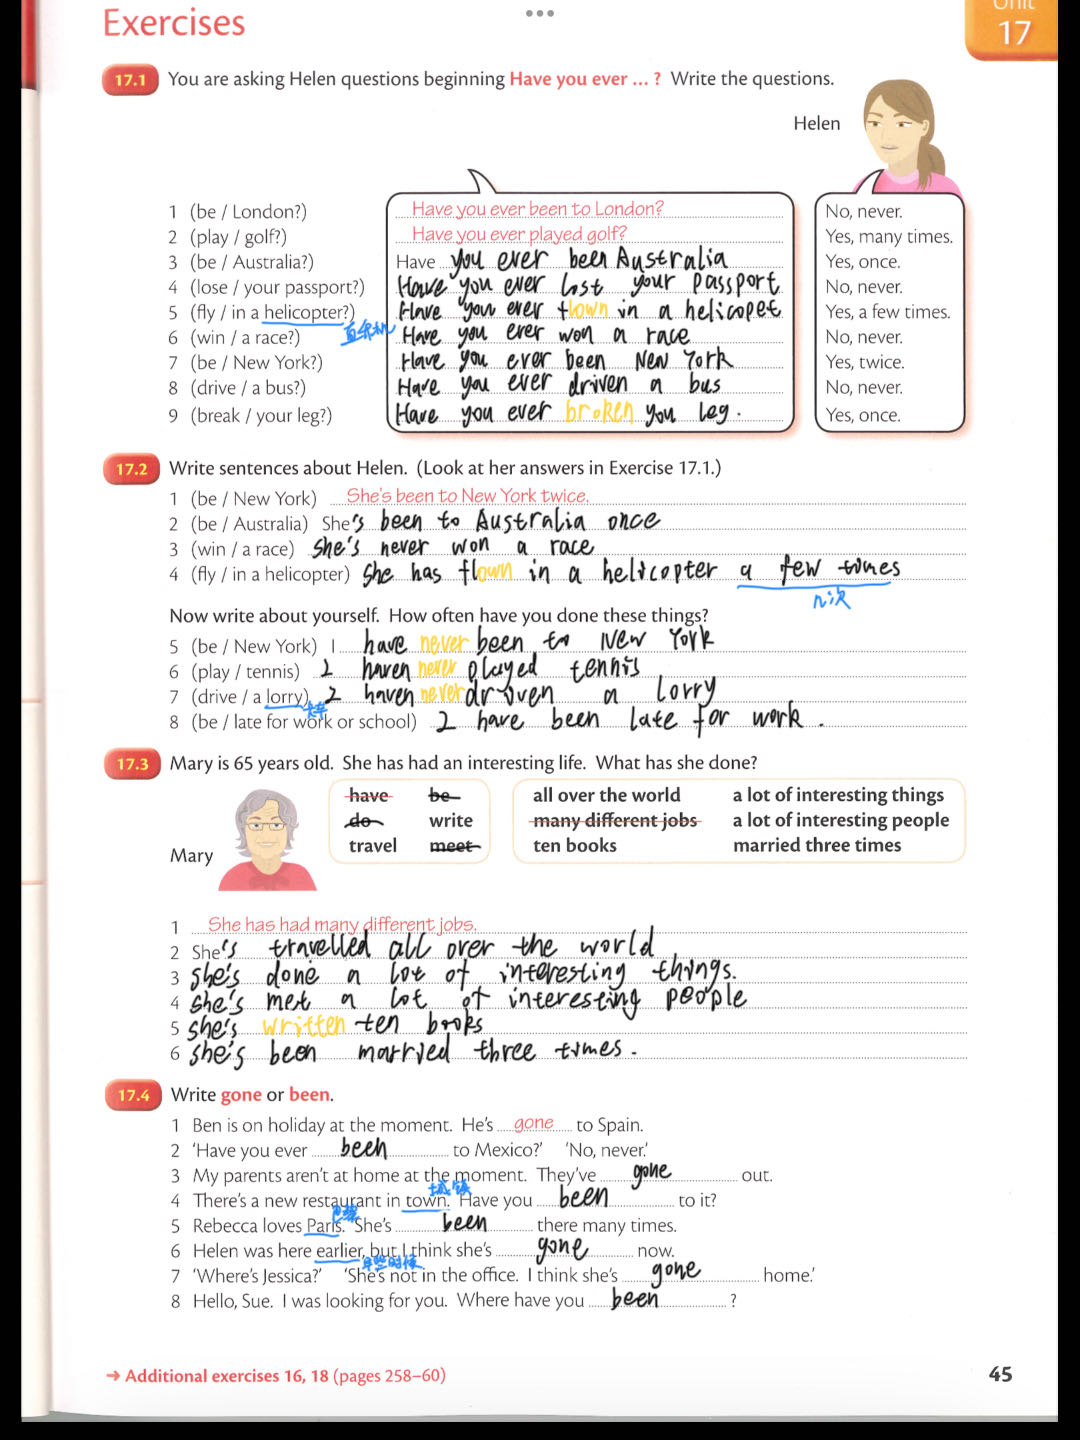 Exercises
Unit 17
17.1 You are asking Helen questions beginning Have you ever ... ? Write the questions.
Helen
1 (be / London?) Have you ever been to London? No, never.
2 (play / golf?) Have you ever played golf? Yes, many times.
3 (be / Australia?) Have you ever been Australia Yes, once.
4 (lose / your passport?) Have you ever lost your passport No, never.
5 (fly / in a helicopter?) Have you ever flown in a helicopet Yes, a few times.
直升机
6 (win / a race?) Have you ever won a race No, never.
7 (be / New York?) Have you ever been New York Yes, twice.
8 (drive / a bus?) Have you ever driven a bus No, never.
9 (break / your leg?) Have you ever broken you leg. Yes, once.
17.2 Write sentences about Helen. (Look at her answers in Exercise 17.1.)
1 (be / New York) She's been to New York twice.
2 (be / Australia) She's been to Australia once
3 (win / a race) she's never won a race
4 (fly / in a helicopter) she has flown in a helicopter a few times
几次
Now write about yourself. How often have you done these things?
5 (be / New York) I have never been to New York
6 (play / tennis) I haven never played tennis
7 (drive / a lorry) I haven never droven a lorry
卡车
8 (be / late for work or school) I have been late for work.
17.3 Mary is 65 years old. She has had an interesting life. What has she done?
have be all over the world a lot of interesting things
do write many different jobs a lot of interesting people
travel meet ten books married three times
Mary
1 She has had many different jobs.
2 She's travelled all over the world
3 she's done a lot of interesting things.
4 she's met a lot of interesting people
5 she's written ten books
6 she's been married three times.
17.4 Write gone or been.
1 Ben is on holiday at the moment. He's gone to Spain.
2 'Have you ever been to Mexico?' 'No, never.'
3 My parents aren't at home at the moment. They've gone out.
城镇
4 There's a new restaurant in town. Have you been to it?
巴黎
5 Rebecca loves Paris. She's been there many times.
6 Helen was here earlier, but I think she's gone now.
早些时候
7 'Where's Jessica?' 'She's not in the office. I think she's gone home.'
8 Hello, Sue. I was looking for you. Where have you been ?
➜ Additional exercises 16, 18 (pages 258–60)
45